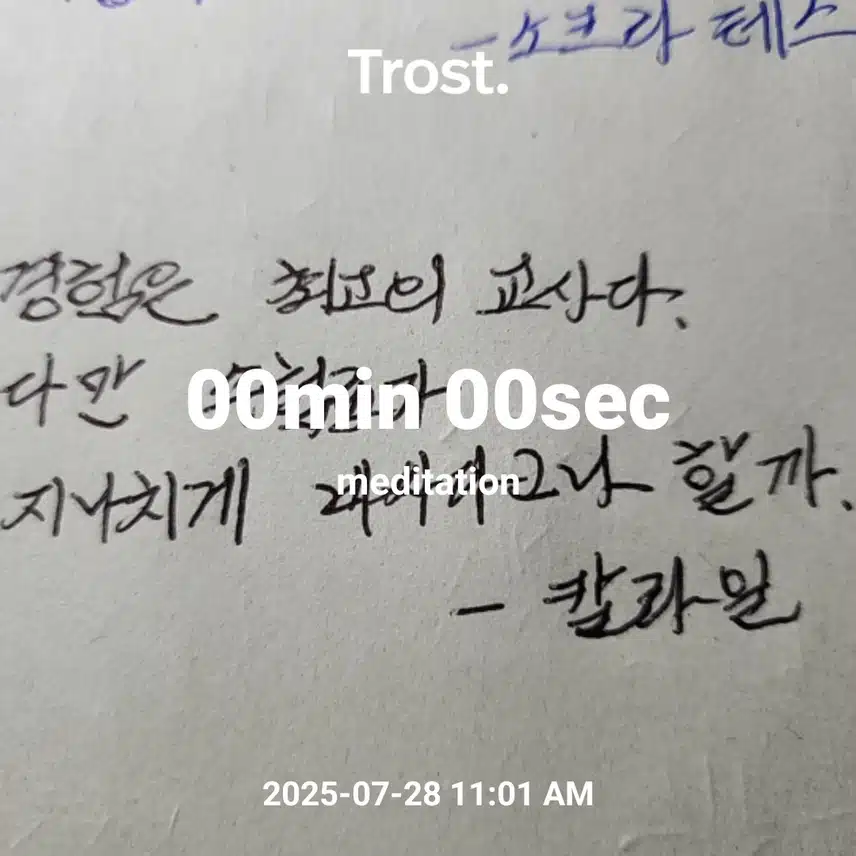 -소크라테스
Trost.
경험은 최고의 교사다.
다만 수험료가
00min 00sec
지나치게 그나 할까.
meditation
- 칼라일
2025-07-28 11:01 AM